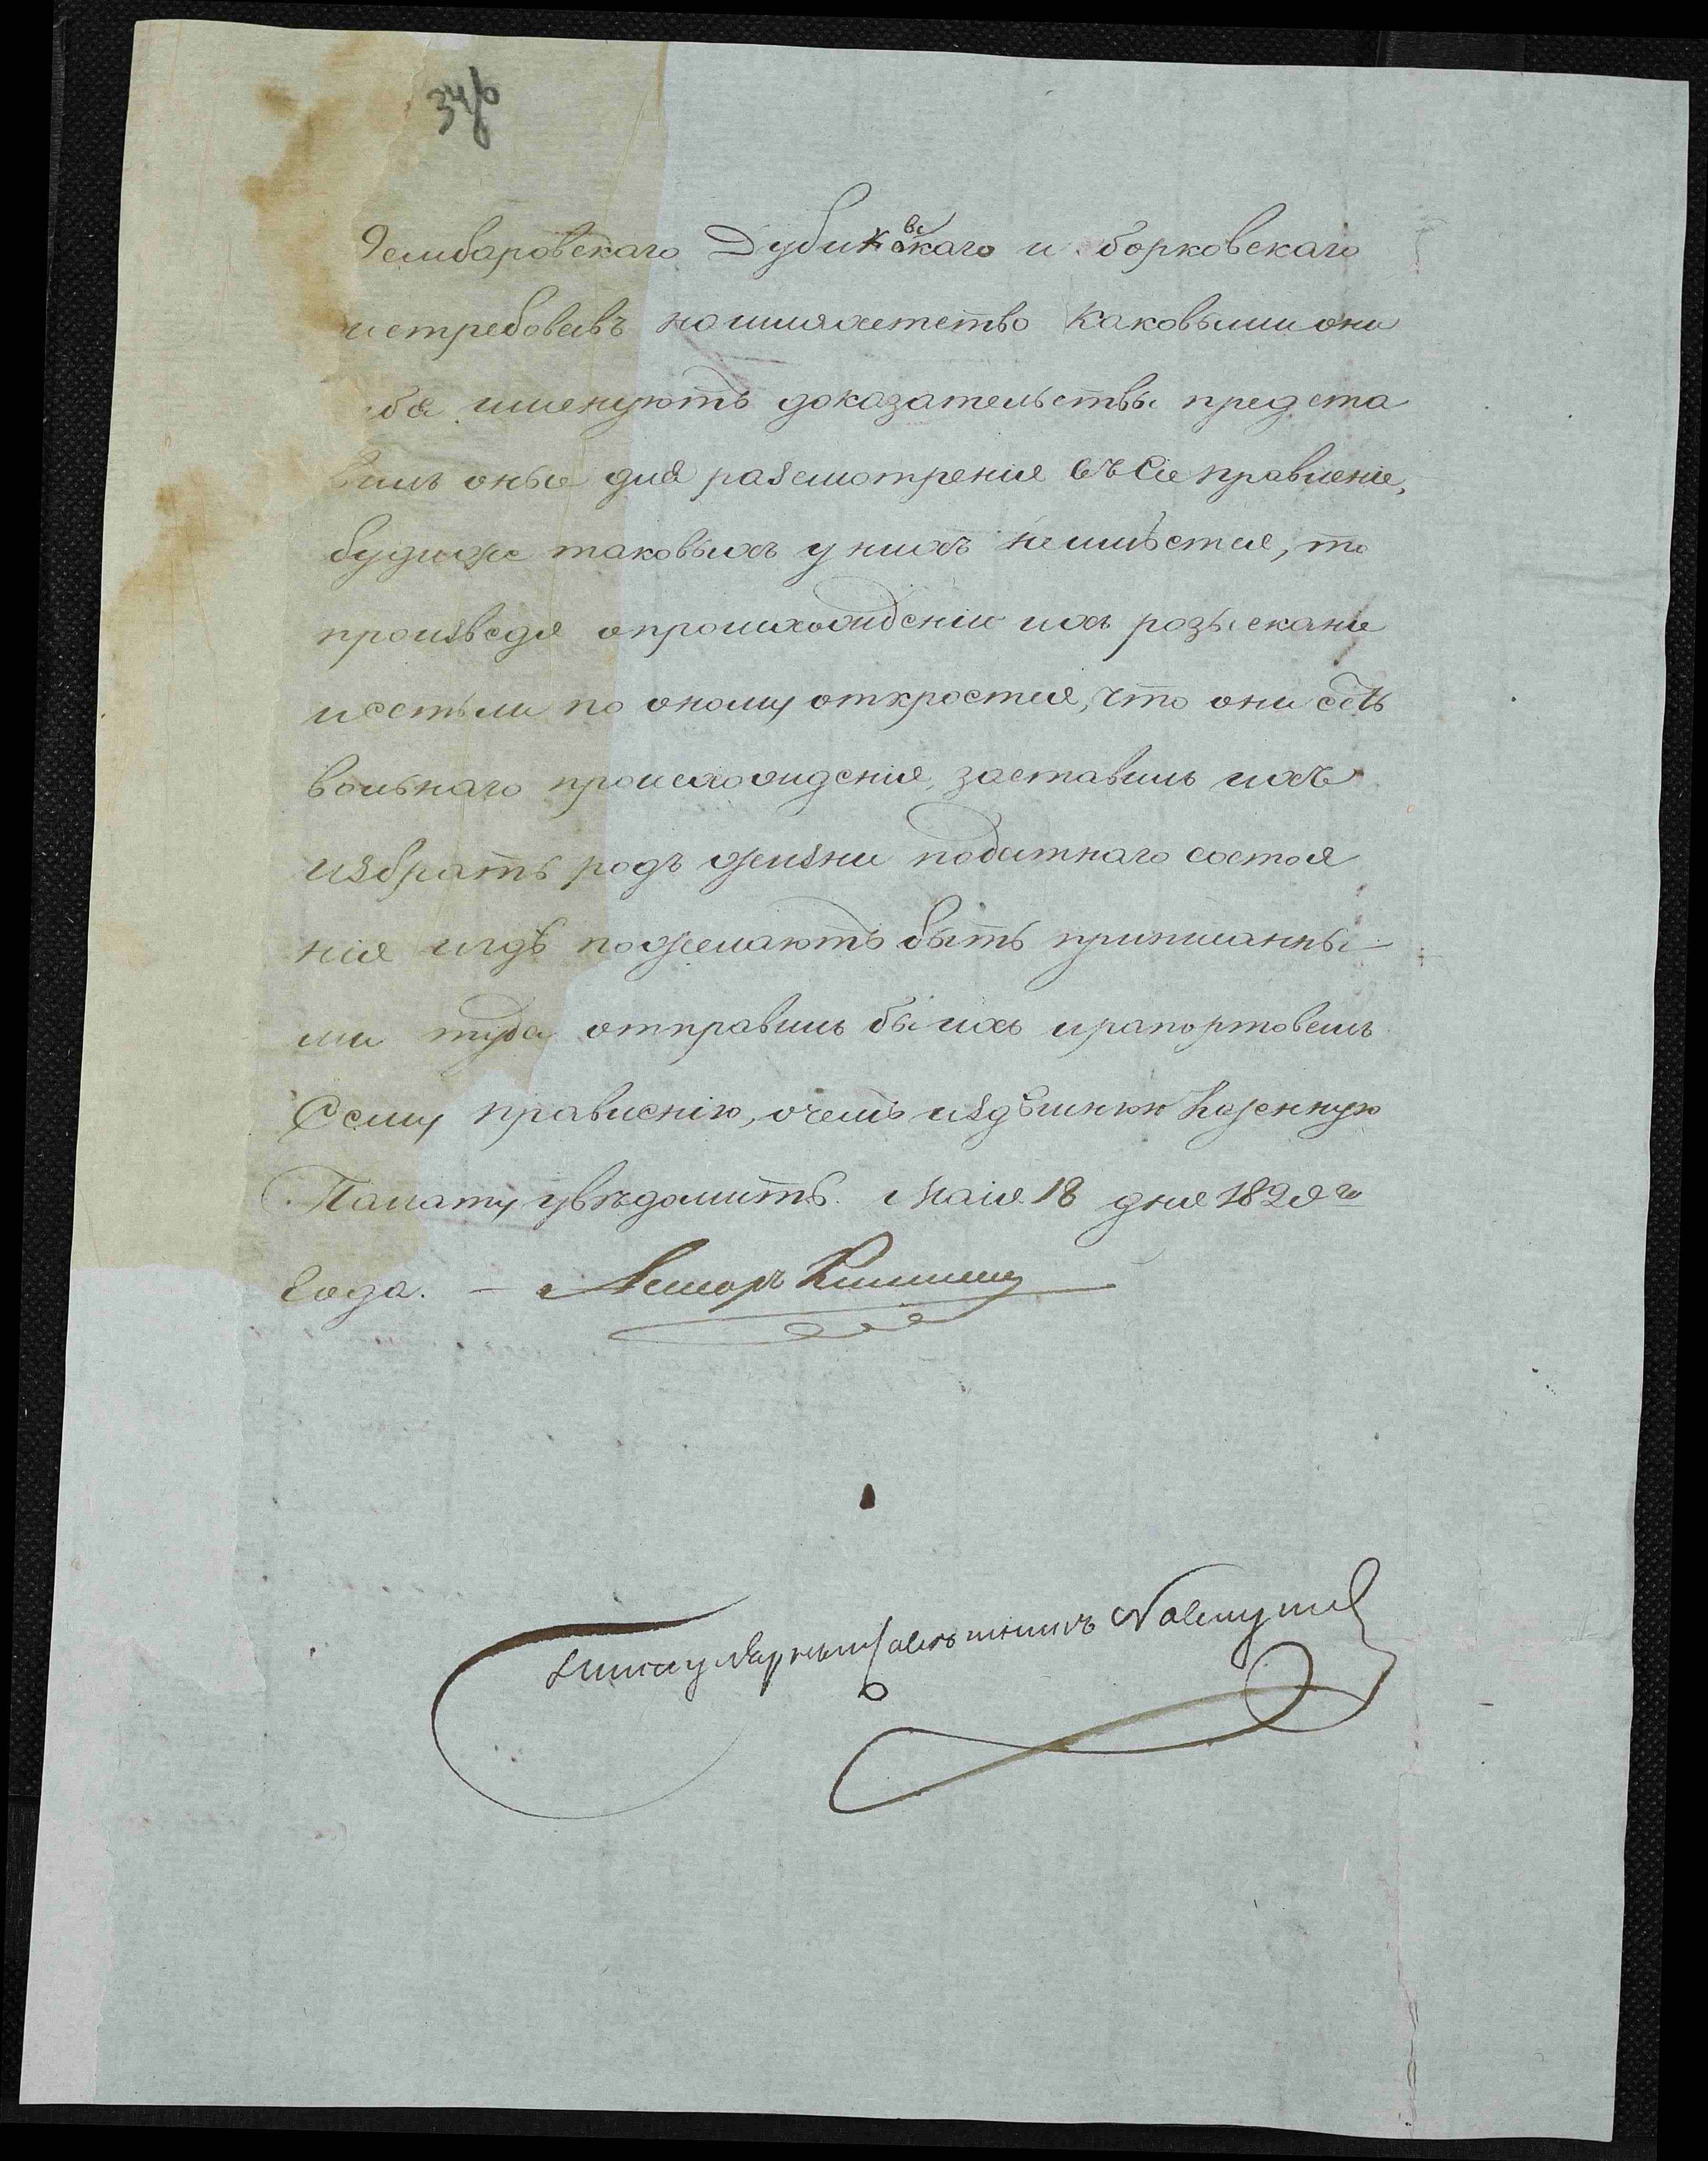 34б
Дембаровскаго Дубиковскаго и борковскаго
истребовавъ нашляхетство каковыми они
себя именуютъ доказательствы предста
вилъ оные для разсмотренія въ Сіе правленіе,
будиже таковыхъ у нихъ неимѣется, то
произведя опроизхождении ихъ розысканіе
иестьли по оному откроется, что они суть
вольнаго происхождения, заставилъ ихъ
избрать родъ жизни податнаго состоя
нія игдѣ пожелаютъ быть приписанны-
ми туда отправилъ бы ихъ ирапортовалъ
Сему правлению, очемъ издѣшнюю Казенную
Палату увѣдомить. Маія 18 дня 1820 го
Года. —
Титулярный Советникъ